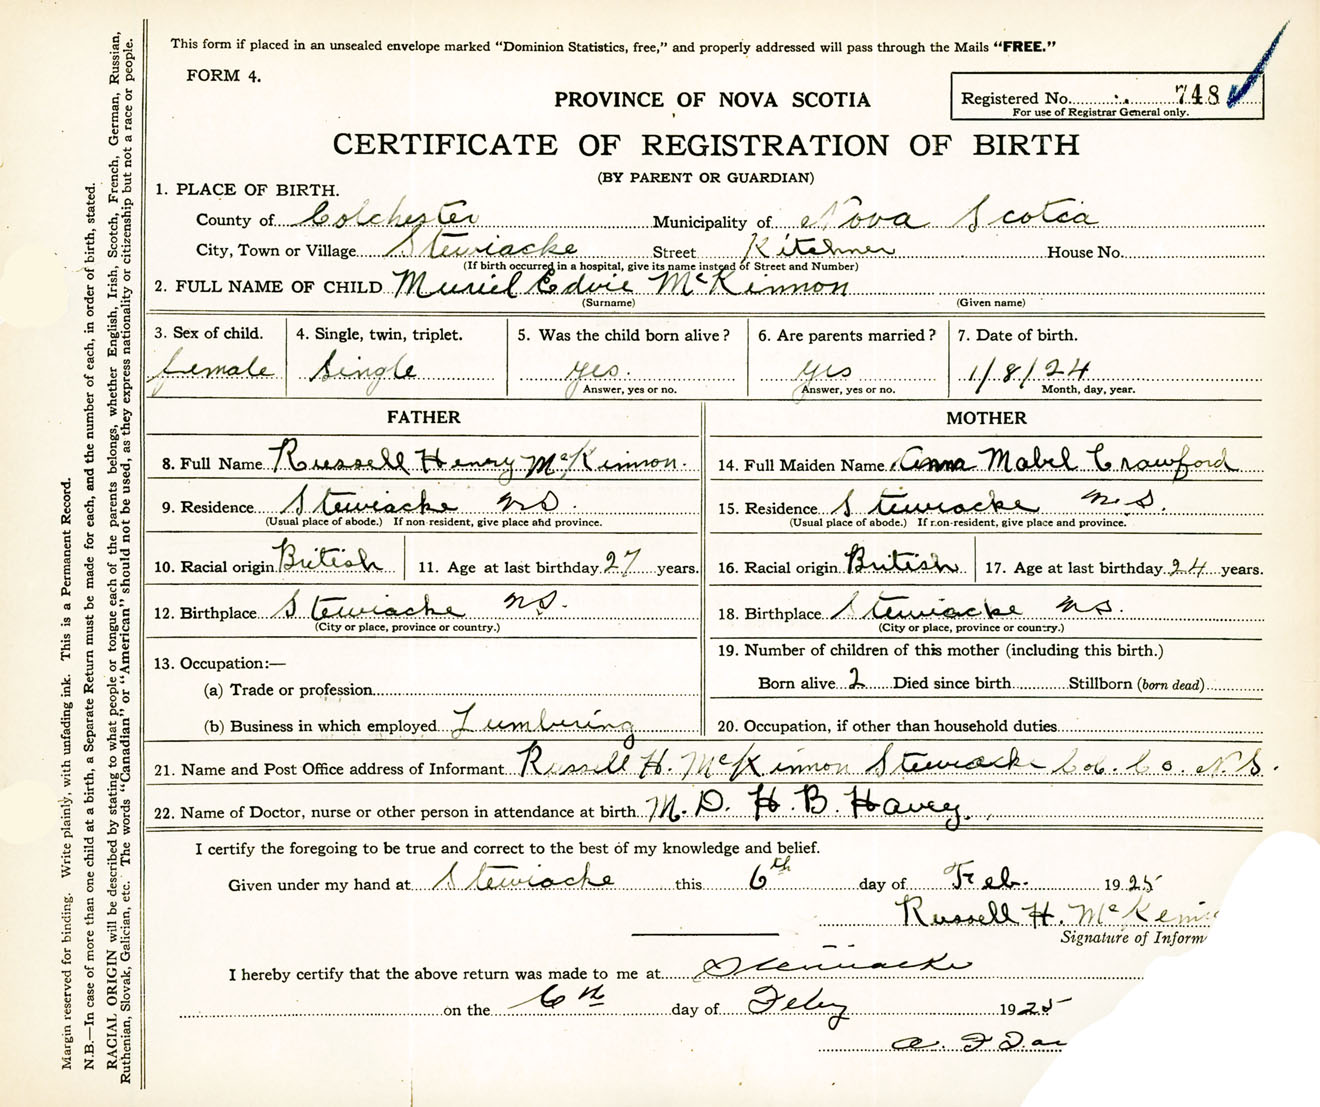 This form if placed in an unsealed envelope marked "Dominion Statistics, free," and properly addressed will pass through the Mails "FREE."
FORM 4.
Registered No. 748
For use of Registrar General only.
PROVINCE OF NOVA SCOTIA
CERTIFICATE OF REGISTRATION OF BIRTH
(BY PARENT OR GUARDIAN)
1. PLACE OF BIRTH.
County of Colchester Municipality of Nova Scotia
City, Town or Village Stewiacke Street Kitchner House No.
(If birth occurred in a hospital, give its name instead of Street and Number)
2. FULL NAME OF CHILD Muriel Edvie McKinnon
(Surname) (Given name)
3. Sex of child. 4. Single, twin, triplet. 5. Was the child born alive? 6. Are parents married? 7. Date of birth.
female Single yes. yes 1/8/24
Answer, yes or no. Answer, yes or no. Month, day, year.
FATHER MOTHER
8. Full Name Russell Henry McKinnon. 14. Full Maiden Name Anna Mabel Crawford
9. Residence Stewiacke NS. 15. Residence Stewiacke N.S.
(Usual place of abode.) If non-resident, give place and province. (Usual place of abode.) If non-resident, give place and province.
10. Racial origin British 11. Age at last birthday 27 years. 16. Racial origin British 17. Age at last birthday 24 years.
12. Birthplace Stewiacke NS. 18. Birthplace Stewiacke NS.
(City or place, province or country.) (City or place, province or country.)
13. Occupation:— 19. Number of children of this mother (including this birth.)
(a) Trade or profession Born alive 2 Died since birth Stillborn (born dead)
(b) Business in which employed Lumbering 20. Occupation, if other than household duties
21. Name and Post Office address of Informant Russell H. McKinnon Stewiacke Col. Co. N.S.
22. Name of Doctor, nurse or other person in attendance at birth M. D. H. B. Havey.
I certify the foregoing to be true and correct to the best of my knowledge and belief.
Given under my hand at Stewiacke this 6th day of Feb. 1925
Russell H. McKinn
Signature of Inform
I hereby certify that the above return was made to me at Stewiacke
on the 6th day of Feby 1925
a. F Da
Margin reserved for binding. Write plainly, with unfading ink. This is a Permanent Record.
N.B.—In case of more than one child at a birth, a Separate Return must be made for each, and the number of each, in order of birth, stated.
RACIAL ORIGIN will be described by stating to what people or tongue each of the parents belongs, whether English, Irish, Scotch, French, German, Russian,
Ruthenian, Slovak, Galician, etc. The words "Canadian" or "American" should not be used, as they express nationality or citizenship but not a race or people.